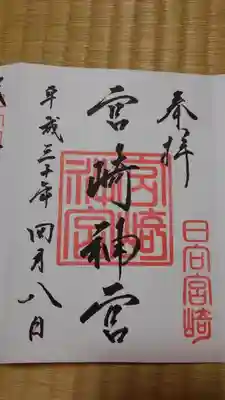 奉拝
日向宮崎
宮崎神宮
宮崎神宮
平成三十年四月八日